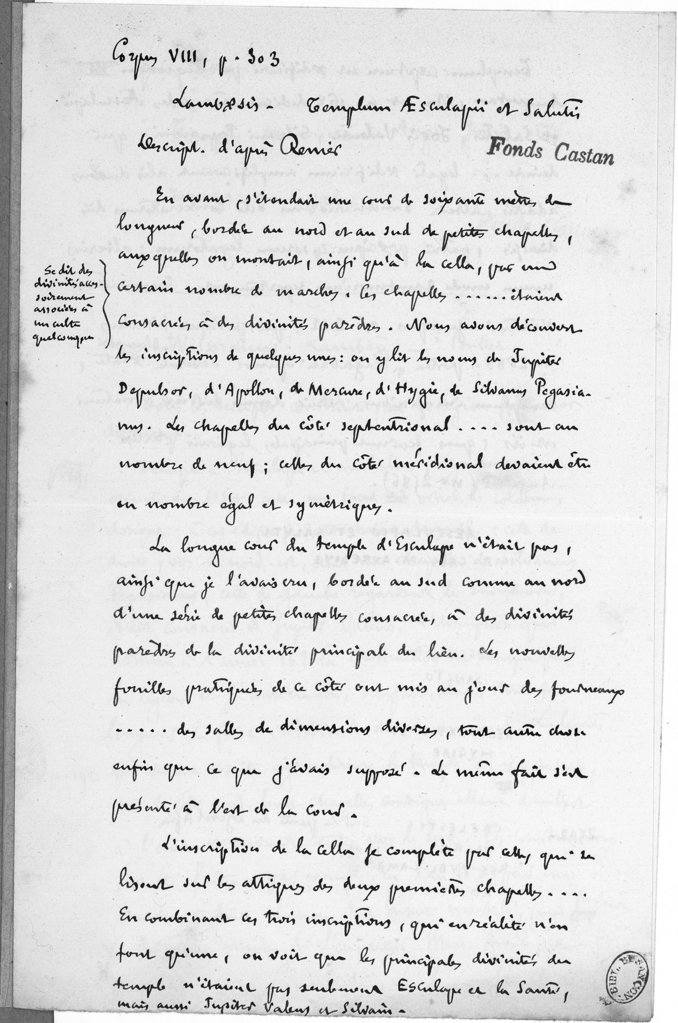 Corpus VIII, p. 303
Lambæsis - Templum Æsculapii et Salutis
Descript. d'après Renier
Fonds Castan
En avant, s'étendait une cour de soixante mètres de
longueur, bordée au nord et au sud de petites chapelles,
auxquelles on montait, ainsi qu'à la cella, par un
certain nombre de marches. Ces chapelles ...... étaient
consacrées à des divinités parèdres. Nous avons découvert
les inscriptions de quelques unes: on y lit les noms de Jupiter
Depulsor, d'Apollon, de Mercure, d'Hygie, de Silvanus Pegasia-
nus. Les chapelles du côté septentrional .... sont au
nombre de neuf; celles du côté méridional devaient être
en nombre égal et symétriques.
Se dit des
divinités acces-
soirement
associées à
un culte
quelconque
La longue cour du temple d'Esculape n'était pas,
ainsi que je l'avais cru, bordée au sud comme au nord
d'une série de petites chapelles consacrées à des divinités
parèdres de la divinité principale du lieu. Les nouvelles
fouilles pratiquées de ce côté ont mis au jour des fourneaux
..... des salles de dimensions diverses, tout autre chose
enfin que ce que j'avais supposé. Le même fait s'est
présenté à l'est de la cour.
L'inscription de la cella se complète par celles qui se
lisent sur les attiques des deux premières chapelles ....
En combinant ces trois inscriptions, qui en réalité n'en
font qu'une, on voit que les principales divinités du
temple n'étaient pas seulement Esculape et la Santé,
mais aussi Jupiter Valens et Silvain.
BIBL. BESANÇON